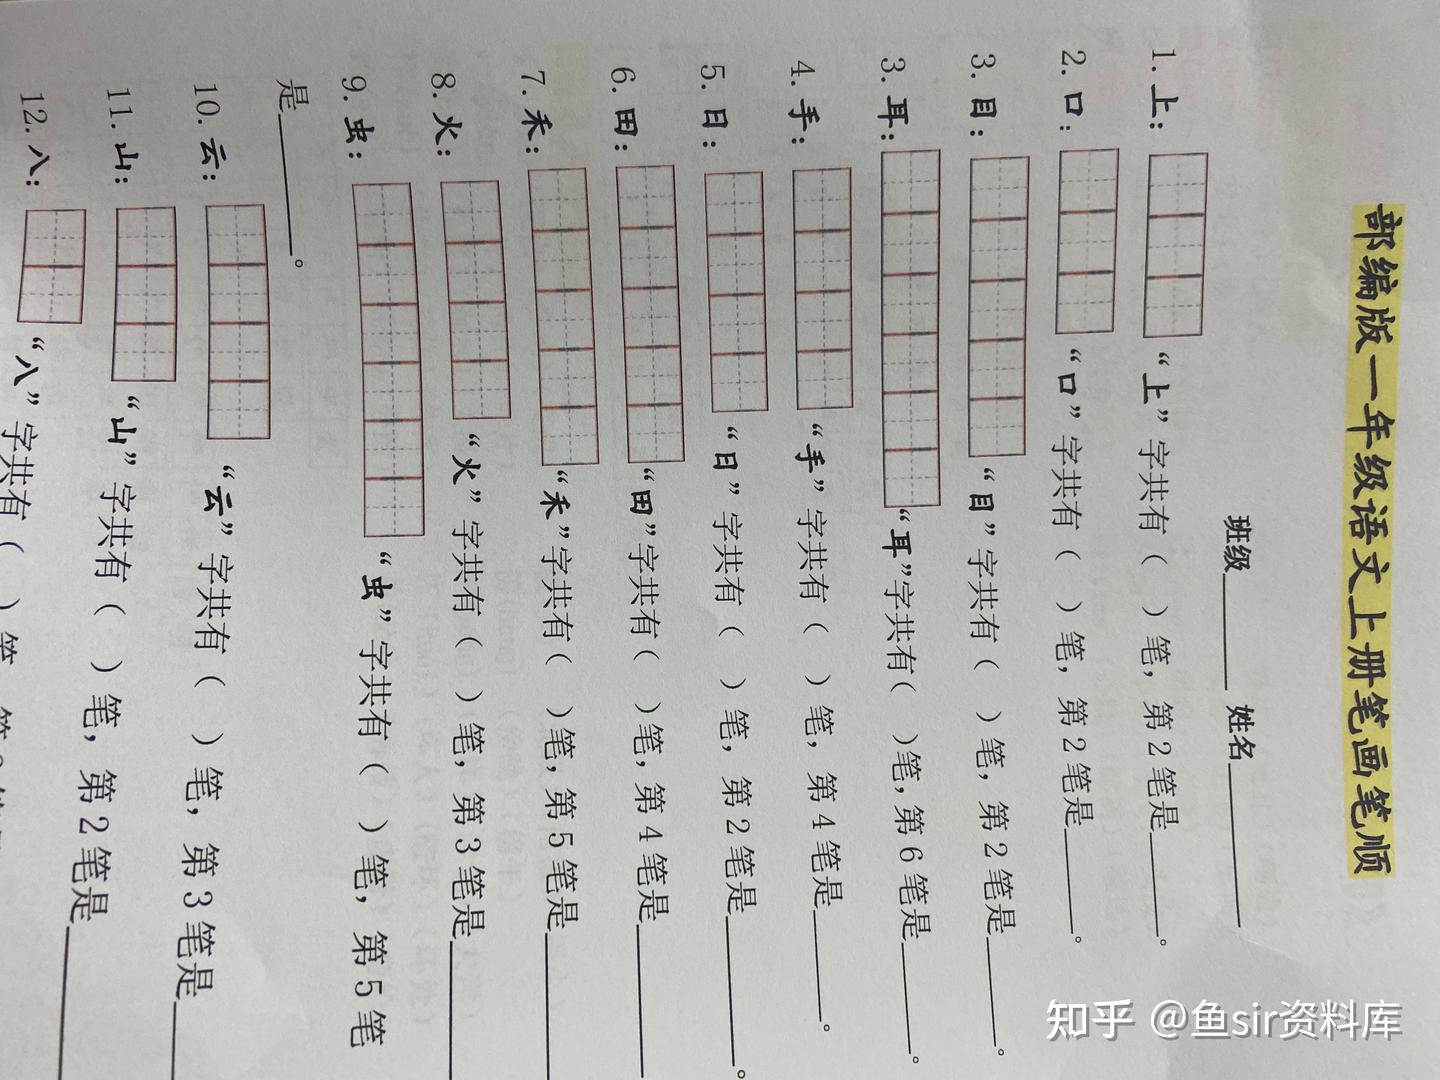 部编版一年级语文上册笔画笔顺
班级______ 姓名______
1.上： “上”字共有（ ）笔，第2笔是______。
2.口： “口”字共有（ ）笔，第2笔是______。
3.目： “目”字共有（ ）笔，第2笔是______。
3.耳： “耳”字共有（ ）笔，第6笔是______。
4.手： “手”字共有（ ）笔，第4笔是______。
5.日： “日”字共有（ ）笔，第2笔是______。
6.田： “田”字共有（ ）笔，第4笔是______
7.禾： “禾”字共有（ ）笔，第5笔是______
8.火： “火”字共有（ ）笔，第3笔是______
9.虫： “虫”字共有（ ）笔，第5笔
是______。
10.云： “云”字共有（ ）笔，第3笔是______
11.山： “山”字共有（ ）笔，第2笔是______
12.八： “八”字共有（ ）笔
知乎 @鱼sir资料库